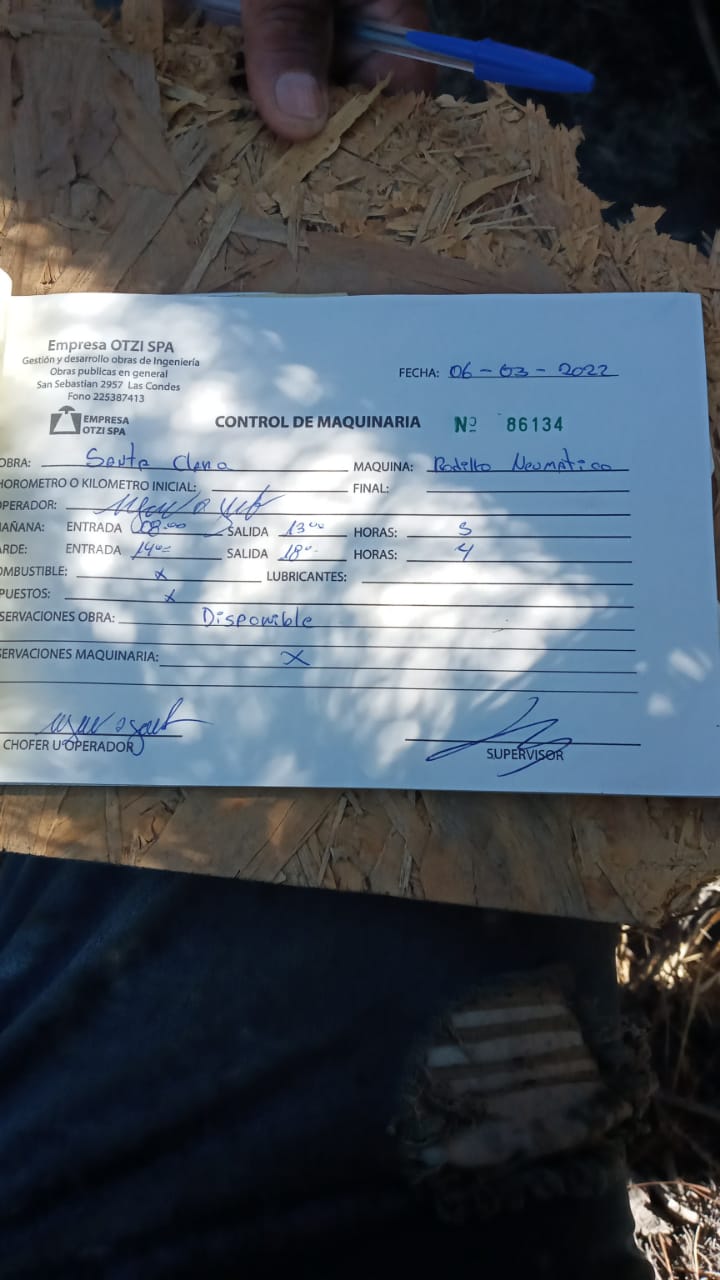 Empresa OTZI SPA
Gestión y desarrollo obras de Ingeniería
Obras publicas en general
San Sebastian 2957 Las Condes
Fono 225387413
FECHA: 06-03-2022
EMPRESA
OTZI SPA
CONTROL DE MAQUINARIA Nº 86134
OBRA: Santa Clara MAQUINA: Rodillo Neumatico
HOROMETRO O KILOMETRO INICIAL: FINAL:
OPERADOR:
MAÑANA: ENTRADA 08:00 SALIDA 13:00 HORAS: 5
ARDE: ENTRADA 14:00 SALIDA 18:00 HORAS: 4
OMBUSTIBLE: x LUBRICANTES:
PUESTOS: x
SERVACIONES OBRA: Disponible
SERVACIONES MAQUINARIA: X
CHOFER U OPERADOR SUPERVISOR